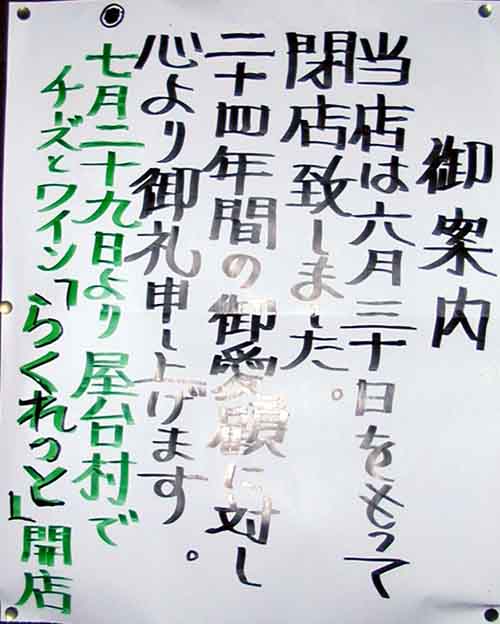 御案内
当店は六月三十日をもって
閉店致しました。
二十四年間の御愛顧に対し
心より御礼申し上げます。
七月二十九日より屋台村で
チーズとワイン「らくれっと」開店